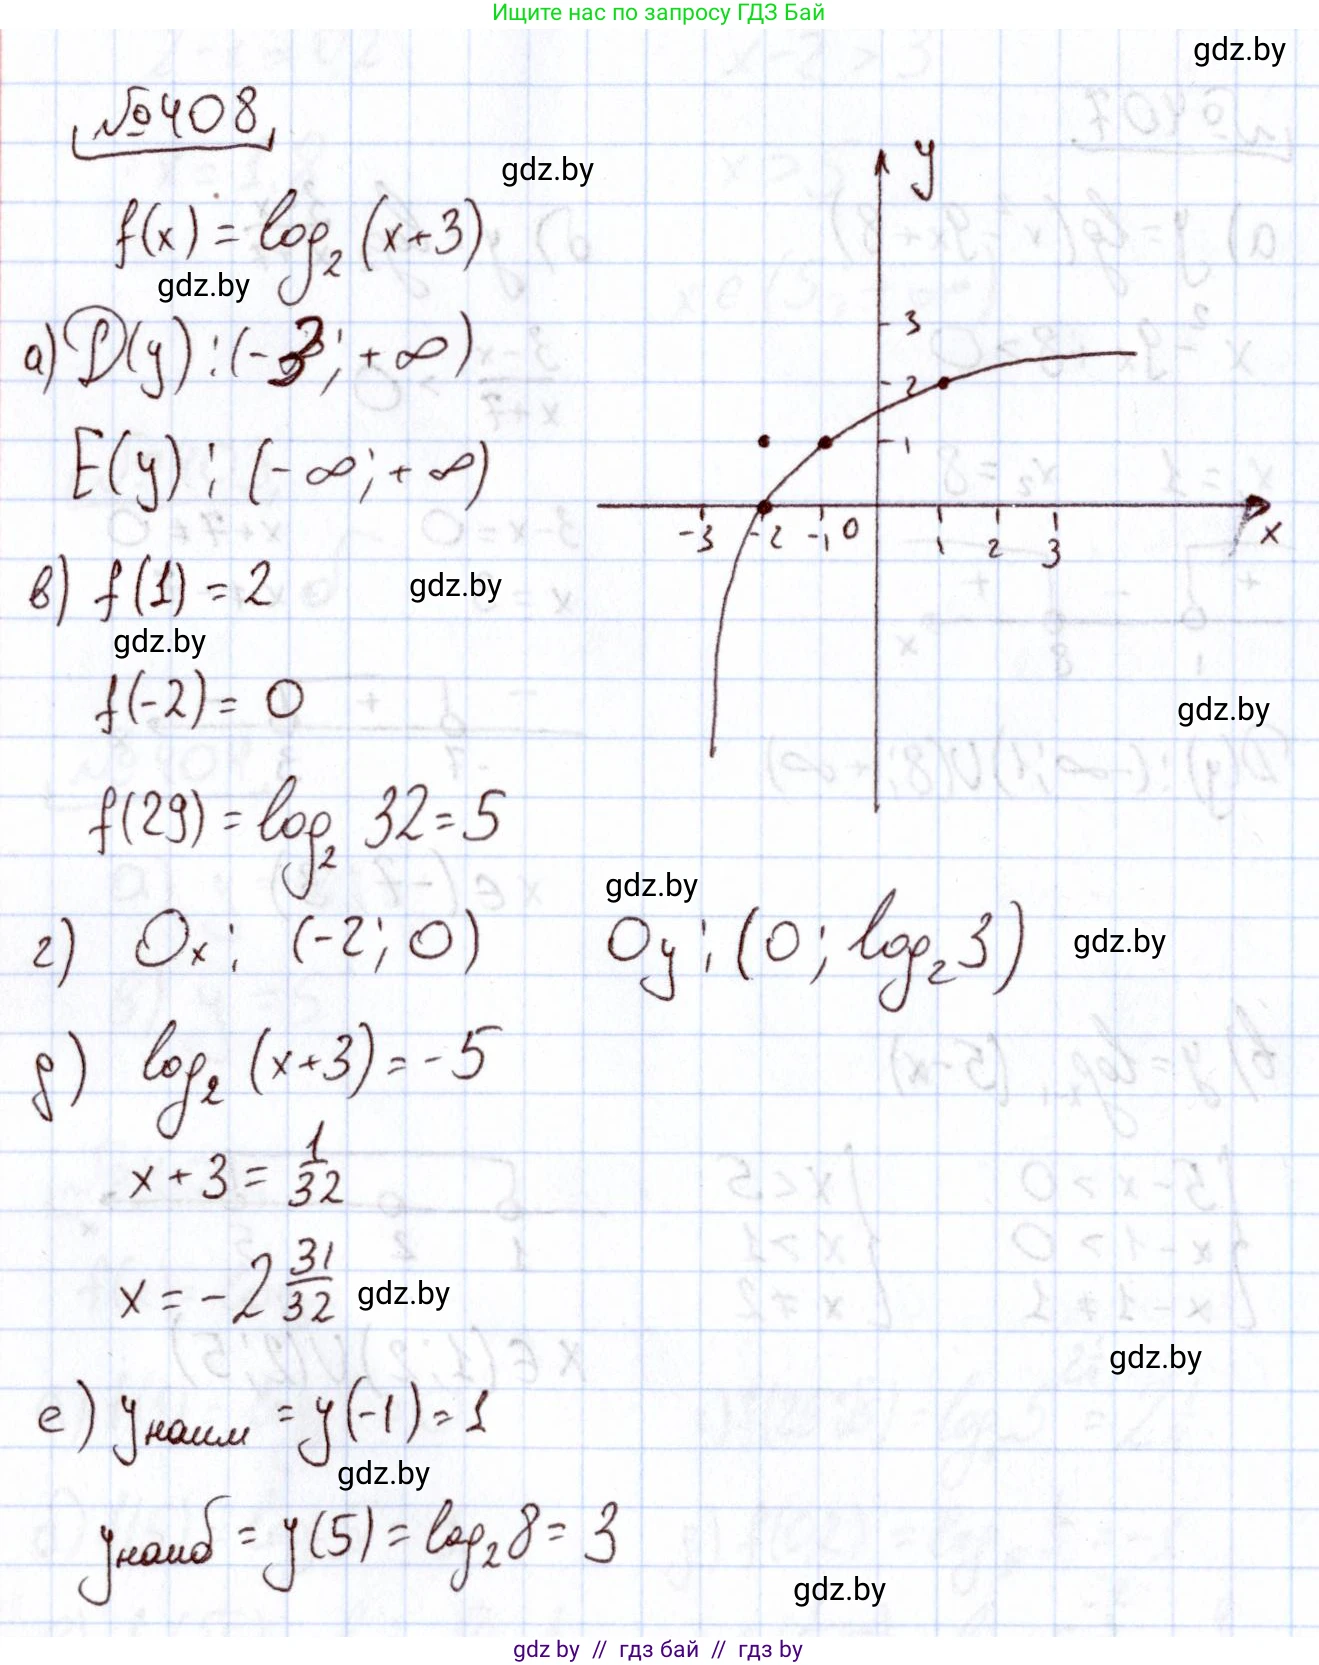 Ищите нас по запросу ГДЗ Бай
gdz.by
№408
gdz.by
f(x) = log₂ (x+3)
gdz.by
а) D(y) : (-3; +∞)
E(y) : (-∞; +∞)
y
3
2
1
-3 -2 -1 0 1 2 3 x
в) f(1) = 2
gdz.by
gdz.by
f(-2) = 0
gdz.by
f(29) = log₂ 32 = 5
gdz.by
г) Ox: (-2; 0) Oy: (0; log₂3)
gdz.by
д) log₂ (x+3) = -5
x + 3 = 1/32
x = -2 31/32
gdz.by
gdz.by
е) y наим = y(-1) = 1
gdz.by
y наиб = y(5) = log₂8 = 3
gdz.by
gdz by // гдз бай // гдз by